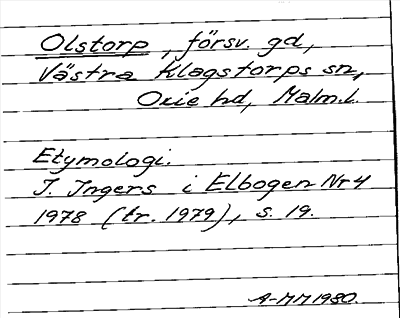 Olstorp, försv. gd,
Västra Klagstorps sn,
Oxie hd, Malm.l.
Etymologi.
I. Ingers i Elbogen Nr 4
1978 (tr. 1979), s. 19.
A-MM 1980.